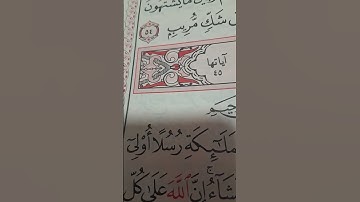 مَا يَشْتَهُونَ
شَكٍّ مُّرِيبٍ ٥٤
آياتها
٤٥
مَلَٰٓئِكَةِ رُسُلًا أُو۟لِىٓ
إِنَّ ٱللَّهَ عَلَىٰ كُلِّ